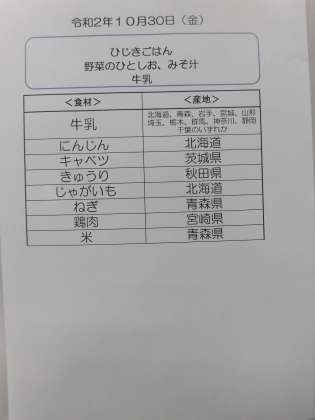 令和2年10月30日（金）
ひじきごはん
野菜のひとしお、みそ汁
牛乳
＜食材＞ ＜産地＞
牛乳 北海道、青森、岩手、宮城、山形
埼玉、栃木、群馬、神奈川、静岡
千葉のいずれか
にんじん 北海道
キャベツ 茨城県
きゅうり 秋田県
じゃがいも 北海道
ねぎ 青森県
鶏肉 宮崎県
米 青森県